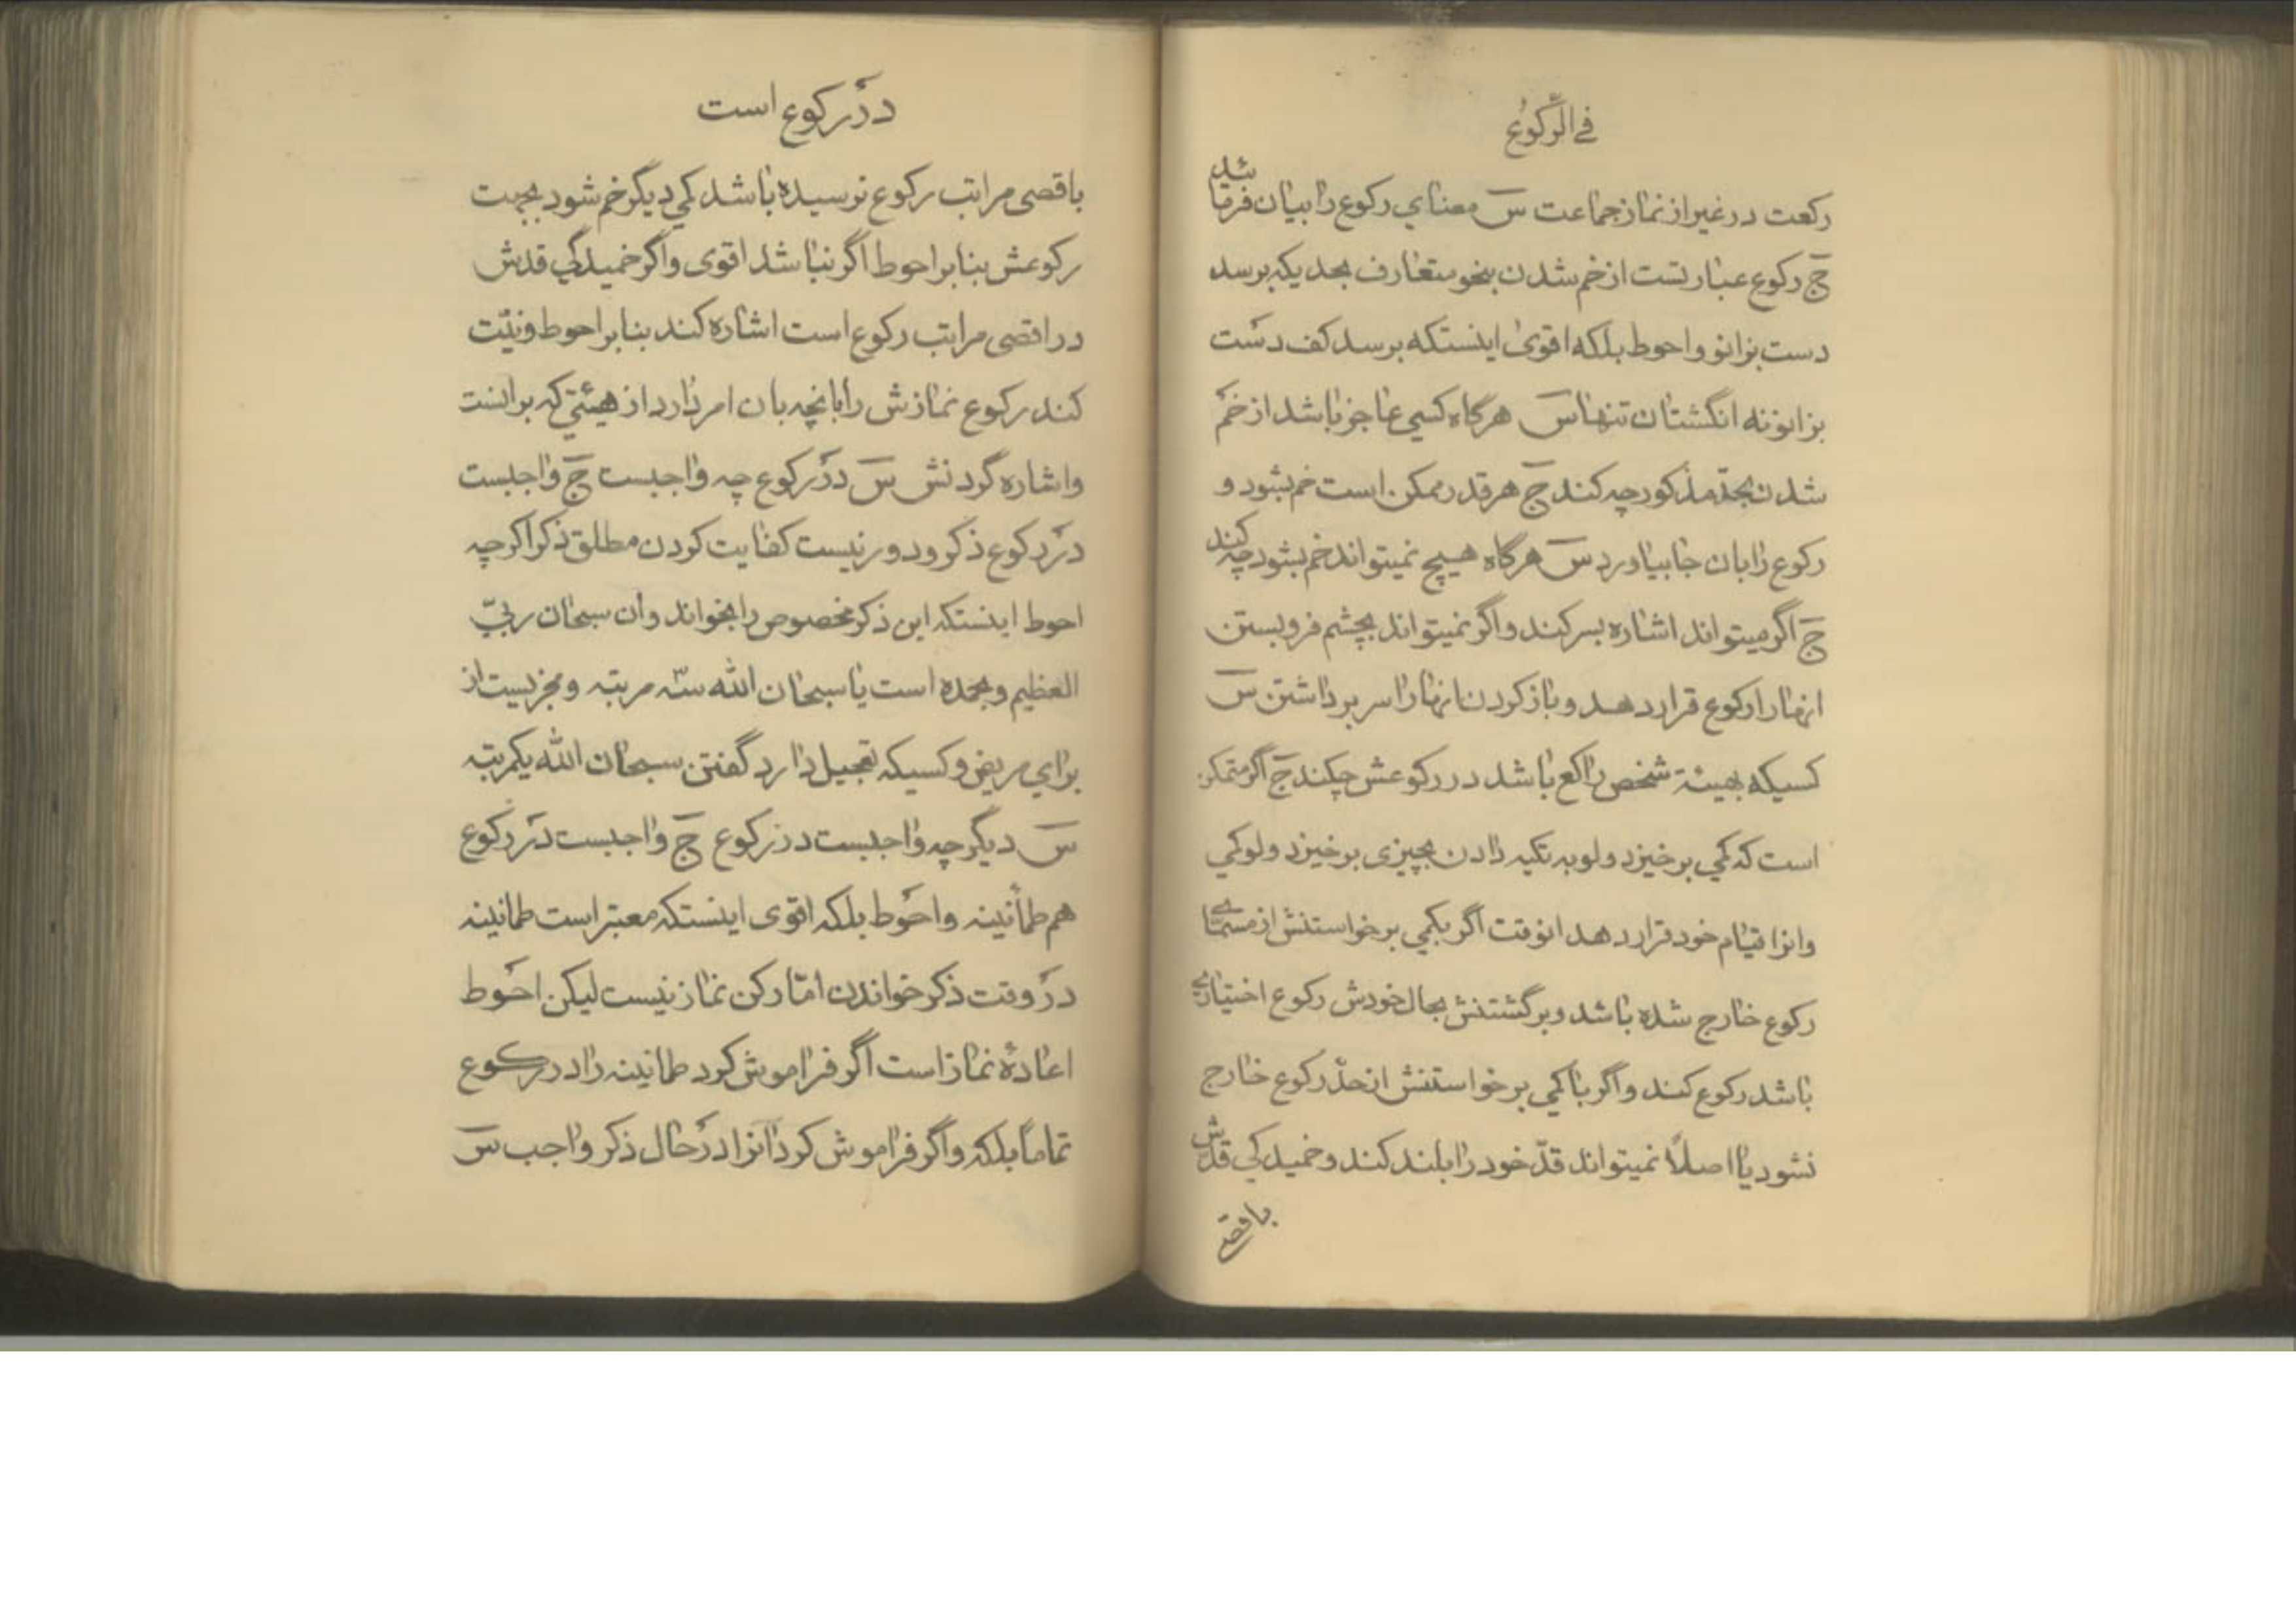 في الرّكوُع
ركعت در غير از نماز جماعت س معناي ركوع را بيان فرمائيد
ج ركوع عبارتست از خم شدن بنحو متعارف بحديكه برسد
دست بزانو و احوط بلكه اقوى اينستكه برسد كف دست
بزانو نه انگشتان تنها س هرگاه كسي عاجز باشد از خم
شدن بحدّ مذكور چه كند ج هر قدر ممكن است خم بشود و
ركوع را بان جا بياورد س هرگاه هيچ نميتواند خم بشود چه كند
ج اگر ميتواند اشاره بسر كند و اگر نميتواند بچشم فرو بستن
انها را ركوع قرار دهد و باز كردن انها را سر برداشتن س
كسيكه بهيئة شخص راكع باشد در ركوعش چكند ج اگر متمكن
است كه كمي برخيزد ولو به تكيه دادن بچيزى برخيزد ولو كمي
وانرا قيام خود قرار دهد انوقت اگر بكمي برخواستنش از مسمّاي
ركوع خارج شده باشد و برگشتنش بحال خودش ركوع اختياري
باشد ركوع كند و اگر با كمي برخواستنش از حدّ ركوع خارج
نشود يا اصلاً نميتواند قدّ خود را بلند كند و خميدگي قدش
باقصى
در ركوع است
باقصى مراتب ركوع نرسيده باشد كمي ديگر خم شود بجهت
ركوعش بنابر احوط اگر نباشد اقوى و اگر خميدگي قدش
در اقصى مراتب ركوع است اشاره كند بنابر احوط و نيّت
كند ركوع نمازش را بانچه بان امر دارد از هيئتي كه برانست
و اشاره گردنش س در ركوع چه واجبست ج واجبست
در ركوع ذكر و دور نيست كفايت كردن مطلق ذكر اگرچه
احوط اينستكه اين ذكر مخصوص را بخواند وان سبحان ربّي
العظيم وبحمده است يا سبحان الله سه مرتبه و مجزيست از
براي مريض و كسيكه تعجيل دارد گفتن سبحان الله يكمرتبه
س ديگر چه واجبست در ركوع ج واجبست در ركوع
هم طمأنينه و احوط بلكه اقوى اينستكه معتبر است طمانينه
در وقت ذكر خواندن امّا ركن نماز نيست ليكن احوط
اعادهٔ نماز است اگر فراموش كرد طمانينه را در ركوع
تماماً بلكه و اگر فراموش كرد انرا در حال ذكر واجب س